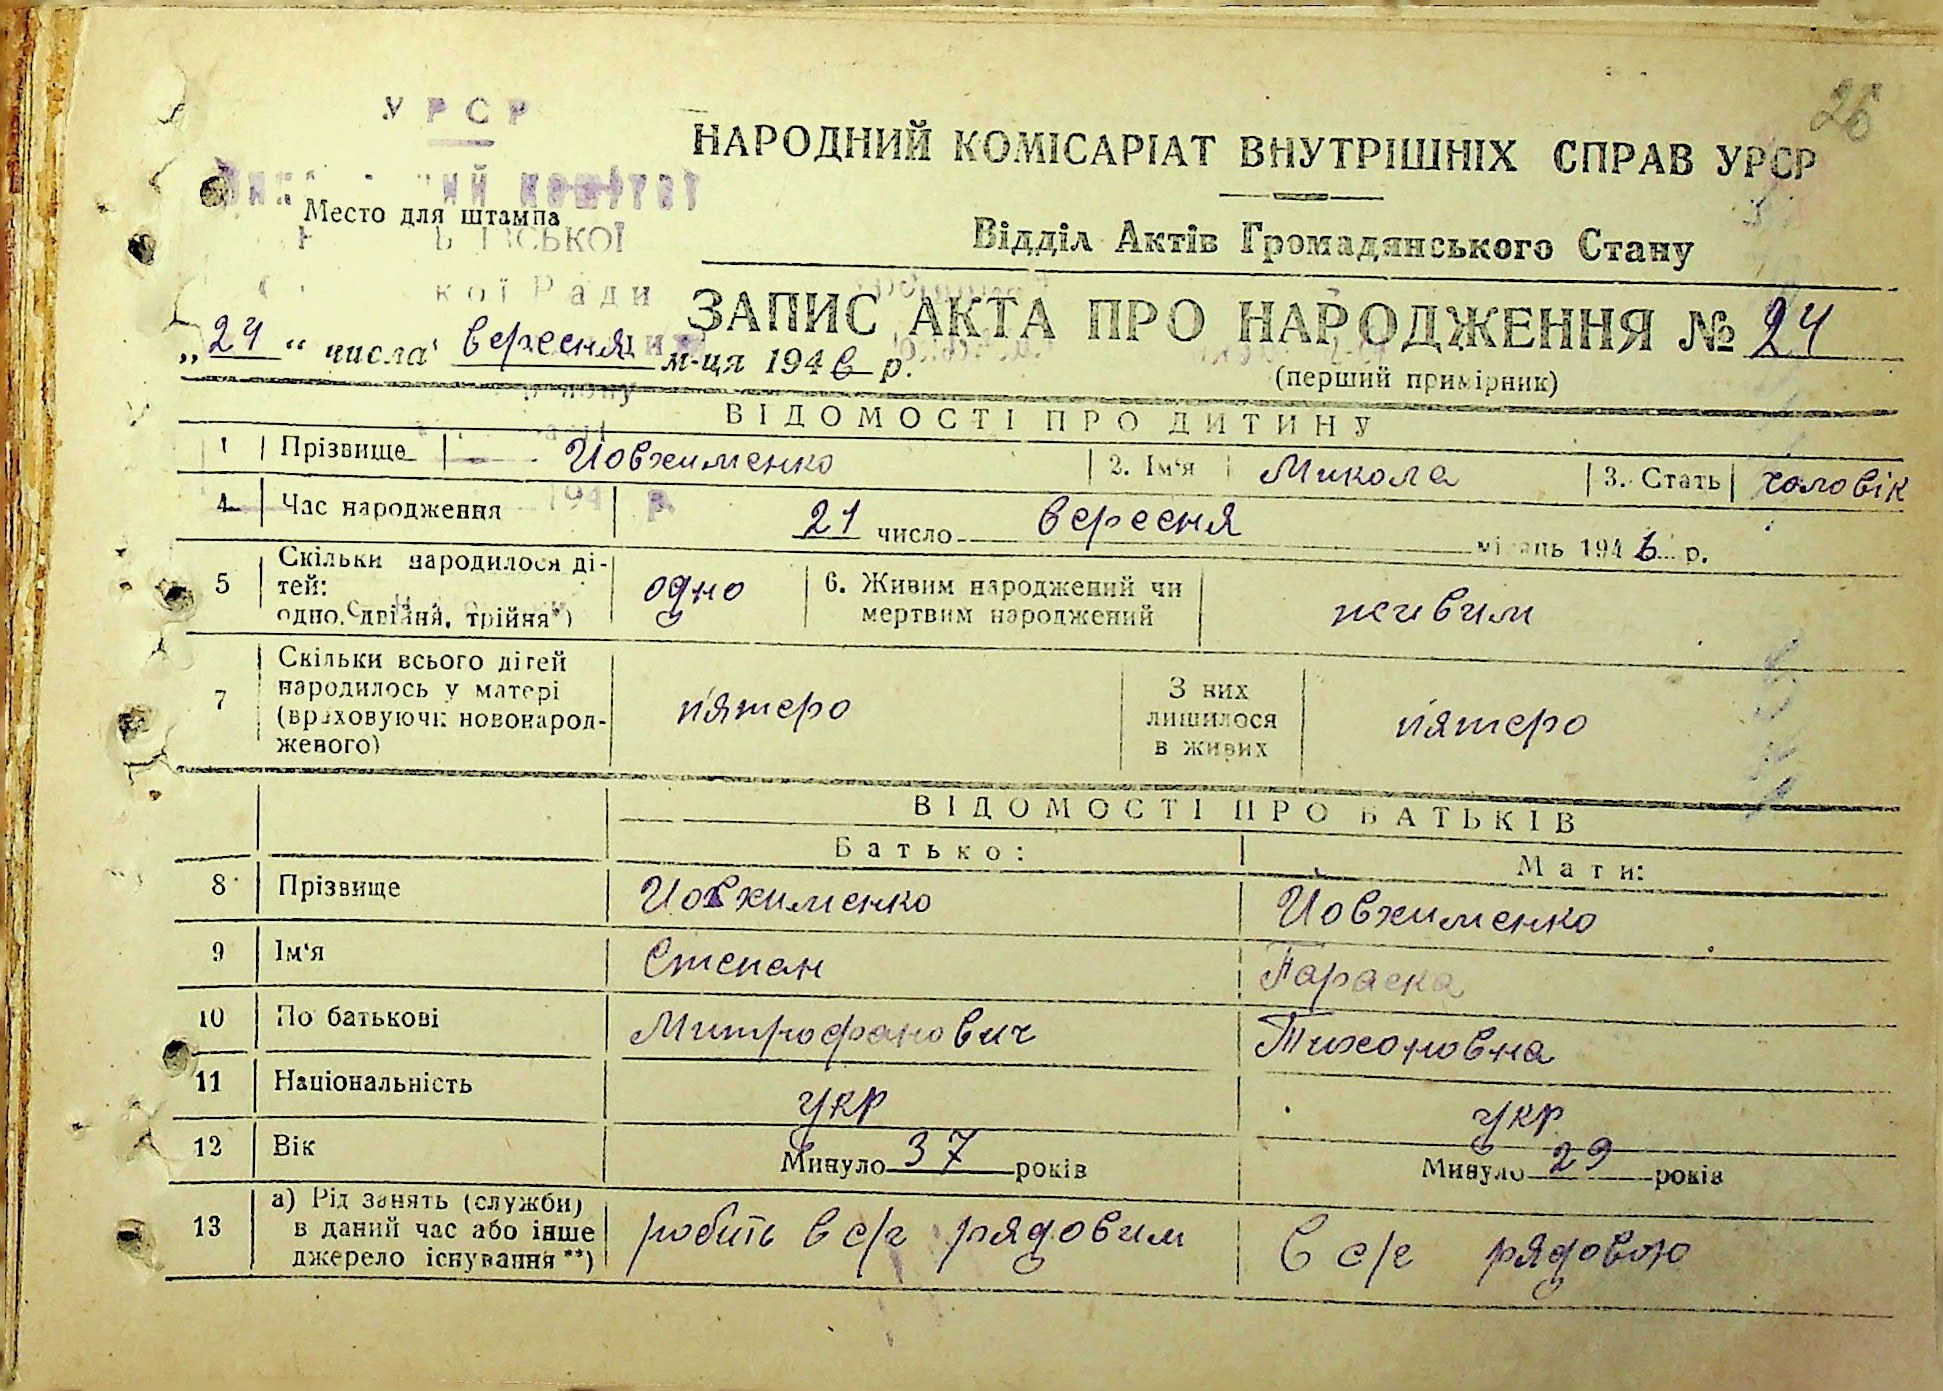 26
УРСР
НАРОДНИЙ КОМІСАРІАТ ВНУТРІШНІХ СПРАВ УРСР
Место для штампа
Відділ Актів Громадянського Стану
кої Ради
ЗАПИС АКТА ПРО НАРОДЖЕННЯ № 24
„24“ числа вересня м-ця 1946 р.
(перший примірник)
ВІДОМОСТІ ПРО ДИТИНУ
1 Прізвище Йовхименко 2. Ім‘я Микола 3. Стать чоловік
4 Час народження 21 число вересня місяць 1946 р.
5 Скільки народилося ді-
тей:
одно, двійня, трійня*) одно 6. Живим народжений чи
мертвим народжений живим
7 Скільки всього дітей
народилось у матері
(враховуючи новонарод-
жевого) п'ятеро З них
лишилося
в живих п'ятеро
ВІДОМОСТІ ПРО БАТЬКІВ
Батько: Мати:
8 Прізвище Йовхименко Йовхименко
9 Ім‘я Степан Параска
10 По батькові Митрофанович Тихоновна
11 Національність укр укр
12 Вік Минуло 37 років Минуло 29 років
13 а) Рід занять (служби)
в даний час або інше
джерело існування **) робить в с/г рядовим в с/г рядовою